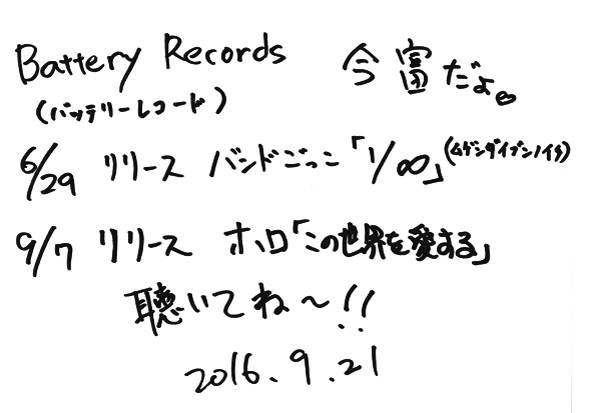 Battery Records 今富だよ。
(バッテリーレコード)
6/29 リリース バンドごっこ「1/∞」(ムゲンダイブンノイチ)
9/7 リリース ホロ「この世界を愛する」
聴いてね〜!!
2016.9.21